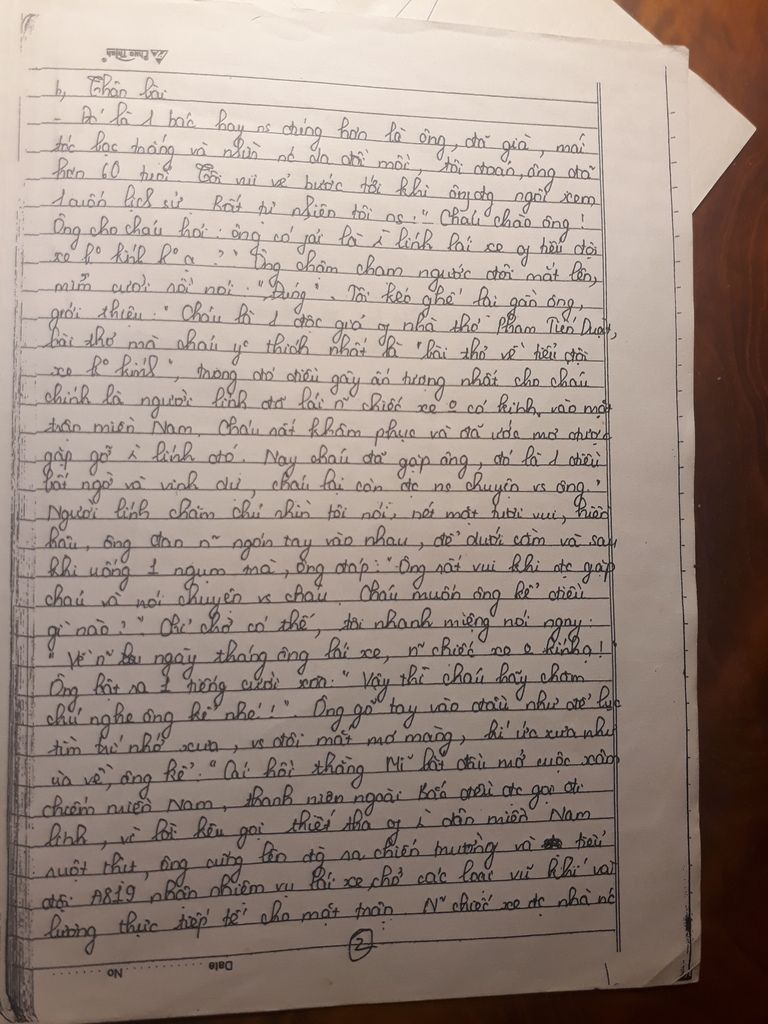 b, Thân bài
- Đó là 1 bác hay ns đúng hơn là ông, đã già, mái
tóc bạc trắng và nhìn nó đồi mồi, tôi đoán, ông đã
hơn 60 tuổi. Tôi vui vẻ bước tới khi ông đg ngồi xem
1 cuốn lịch sử. Rất tự nhiên tôi ns: "Cháu chào ông!
Ông cho cháu hỏi: ông có phải là lính lái xe of tiểu đội
xe ko kính ko ạ?" Ông chậm chạm ngước đôi mắt lên,
mỉm cười rồi nói: "Đúng". Tôi kéo ghế lại gần ông,
giới thiệu: "Cháu là 1 độc giả of nhà thơ Phạm Tiến Duật,
bài thơ mà cháu yo thích nhất là "bài thơ về tiểu đội
xe ko kính", trong đó điều gây ấn tượng nhất cho cháu
chính là người lính đã lái ~ chiếc xe o có kính vào mặt
trận miền Nam. Cháu rất khâm phục và đã ước mơ được
gặp gỡ lính đó. Nay cháu đã gặp ông, đó là 1 điều
bất ngờ và vinh dự, cháu lại còn đc ns chuyện vs ông."
Người lính chăm chú nhìn tôi nói, nét mặt tươi vui, hiền
hậu, ông đan ~ ngón tay vào nhau, để dưới cằm và sau
khi uống 1 ngụm trà, ông đáp: "Ông rất vui khi đc gặp
cháu và nói chuyện vs cháu. Cháu muốn ông kể điều
gì nào?" Chỉ chờ có thế, tôi nhanh miệng nói ngay:
"Về ~ ngày tháng ông lái xe, ~ chiếc xe o kính ạ!
Ông bật ra 1 tiếng cười xòa: "Vậy thì cháu hãy chăm
chú nghe ông kể nhé!". Ông gõ tay vào đầu như để lục
tìm trí nhớ xưa, vs đôi mắt mơ màng, kí ức xưa như
ùa về, ông kể: "Cái hồi thằng Mĩ bắt đầu mở cuộc xâm
chiếm miền Nam, thanh niên ngoài Bắc đều đc gọi đi
lính, vì lời kêu gọi thiết tha of dân miền Nam
ruột thịt, ông cũng lên đg ra chiến trường và tiểu
đội A819 nhận nhiệm vụ lái xe, chở các loại vũ khí và
lương thực tiếp tế cho mặt trận. ~ chiếc xe đc nhà nc
2
Date
No